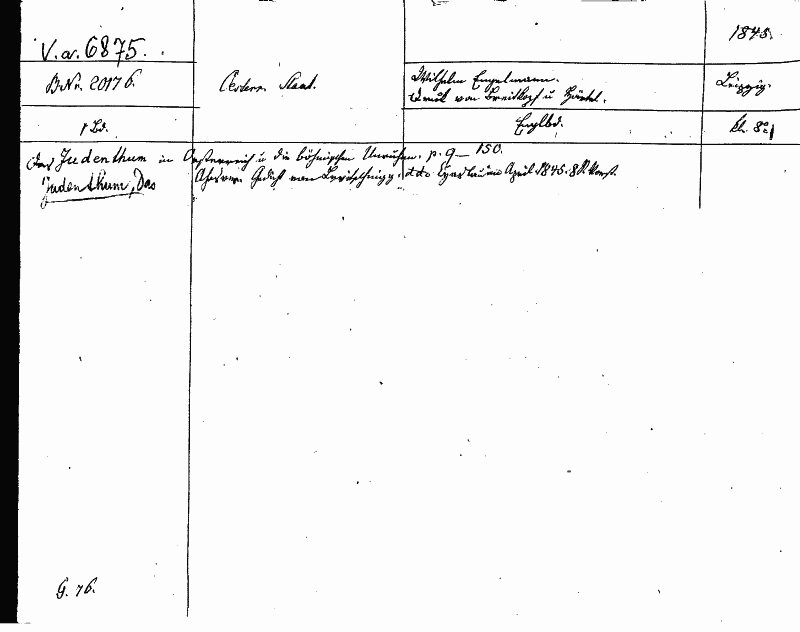 V.a. 6875.
1845.
B.Nr. 20176.
Oesterr. Staat.
Wilhelm Engelmann.
Druck von Breitkopf u Härtel.
Leipzig.
1 Bd.
Englbd.
kl. 8º
Das Judenthum in Oesterreich u die böhmischen Unruhen. p. 9 — 150.
Judenthum, Das
Ahasver. Gedicht von Levitschnigg dto April 1845. 8
G. 76.